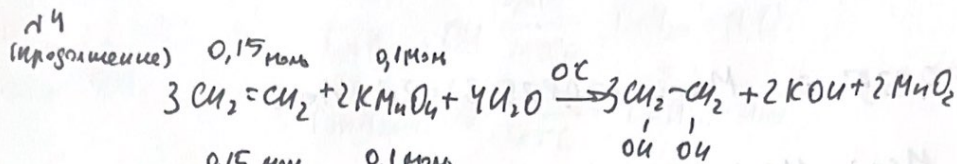 №4
(продолжение) 0,15 моль 0,1 моль
3 CH₂=CH₂ + 2KMnO₄ + 4H₂O 0°C → 3CH₂–CH₂ + 2KOH + 2MnO₂
OH OH
0,15 моль 0,1 моль